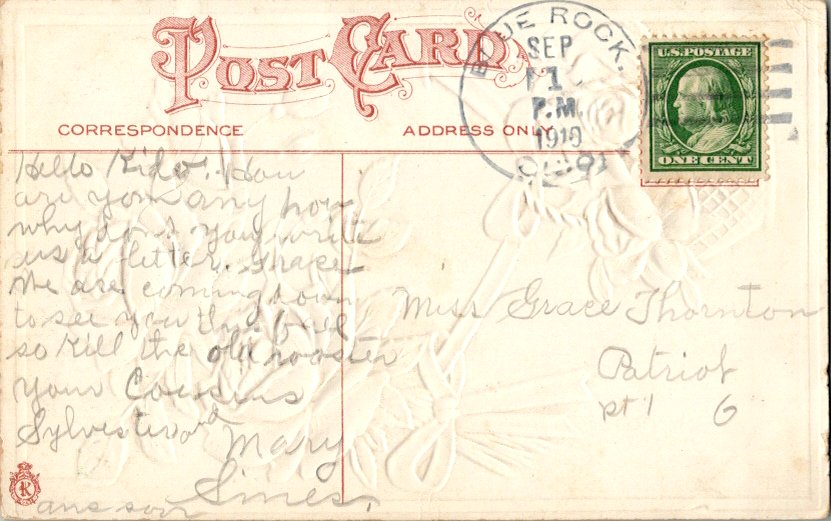 POST CARD
CORRESPONDENCE
ADDRESS ONLY
BLUE ROCK.
SEP
1
P.M.
1910
OHIO
U.S. POSTAGE
ONE CENT
Hello Kido. How
are you any how
why dont you write
us a letter. Grace
We are coming down
to see you this fall
so kill the old rooster
your Cousins
Sylvester and
Mary
Simes.
ans soon
Miss Grace Thornton
Patriot
O
K